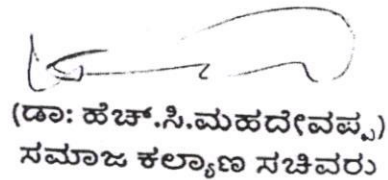 (ಡಾ: ಹೆಚ್.ಸಿ.ಮಹದೇವಪ್ಪ)
ಸಮಾಜ ಕಲ್ಯಾಣ ಸಚಿವರು